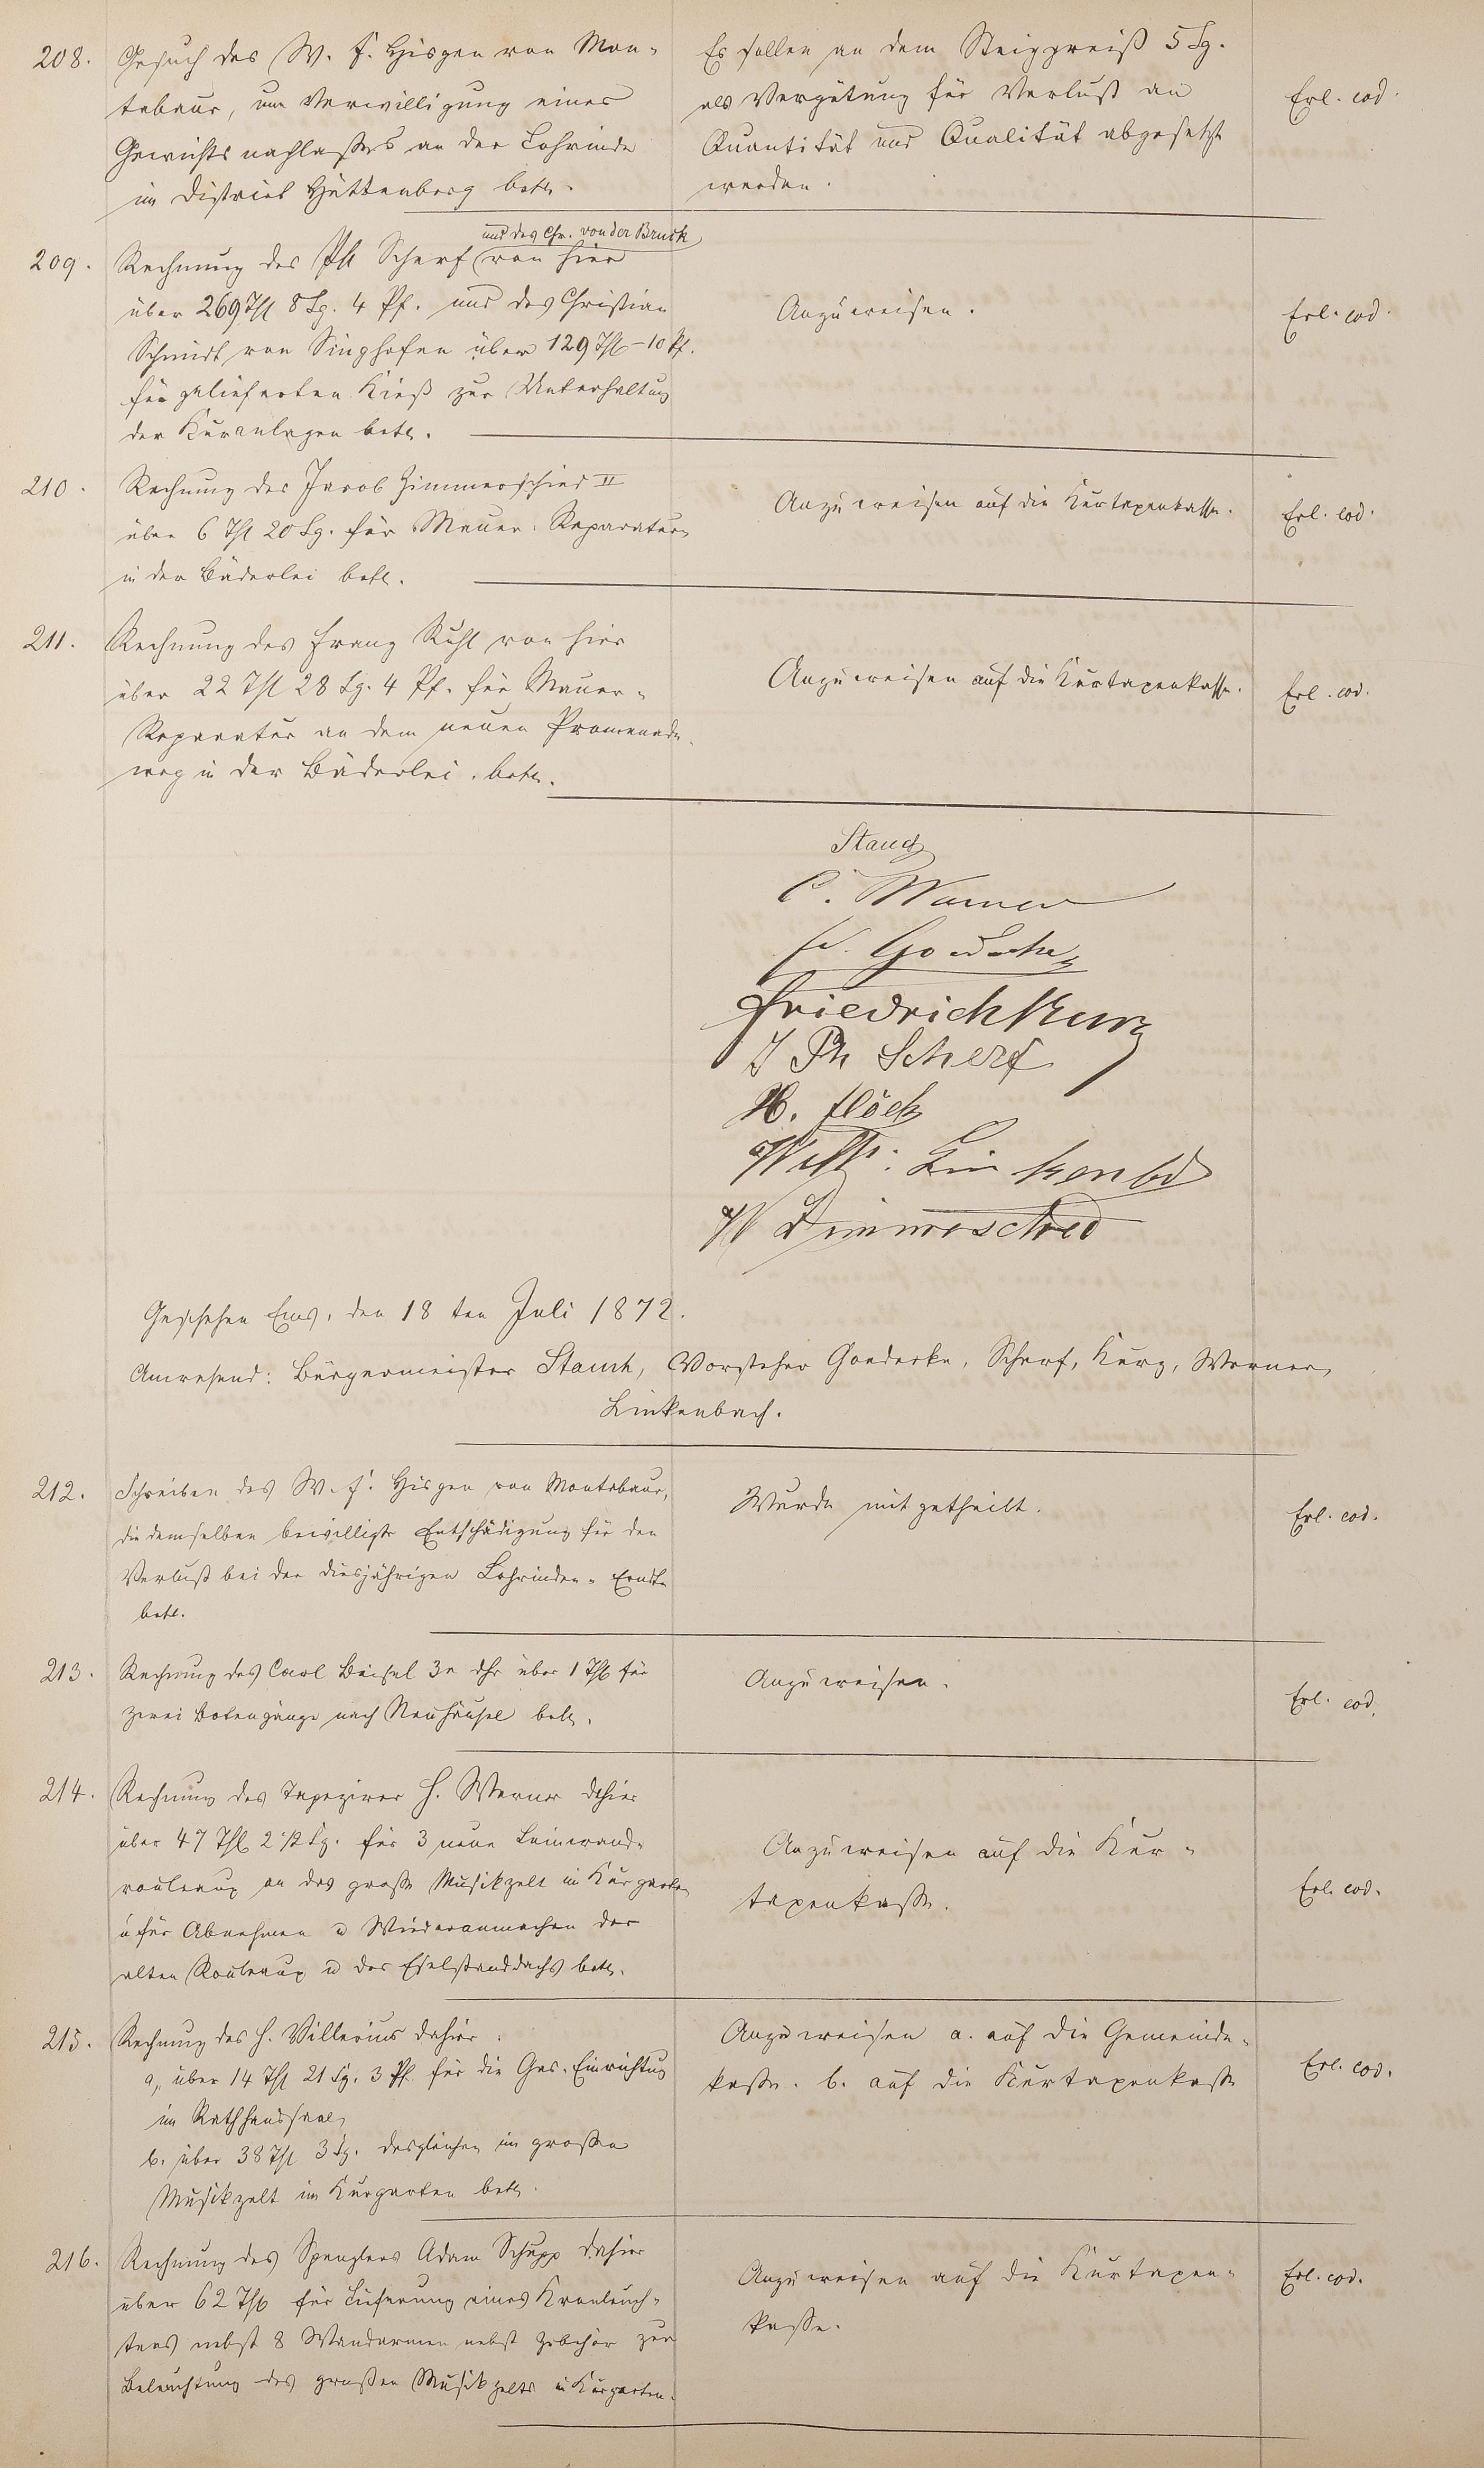 208.
Gesuch des W. F. Hisgen von Mon-
tabaur, um Verwilligung eines
Gewichtsnachlaßes an der Lohrinde
im District Hüttenberg betr.
Es sollen an dem Steigpreiß 5 Sg.
als Vergütung für Verlust an
Quantität und Qualität abgesetzt
werden.
Erl. eod.
209.
und des Chr. von der Bruck
Rechnung des Ph Scherf von hier
über 269 Thl 8 Sg. 4 Pf. und des Christian
Schmidt von Singhofen über 129 Thl – 10 Pf.
für gelieferten Kieß zur Unterhaltung
der Kuranlagen betr.
Anzuweisen.
Erl. eod.
210.
Rechnung des Jacob Zimmerschied II
über 6 Thl 20 Sg. für Mauer-Reparatur
in der Bäderlei betr.
Anzuweisen auf die Kurtaxenkasse.
Erl. eod.
211.
Rechnung des Franz Ruhl von hier
über 22 Thl 28 Sg. 4 Pf. für Mauer-
Reparatur an dem neuen Promenade-
weg in der Bäderlei. betr.
Anzuweisen auf die Kurtaxenkasse.
Erl. eod.
Stauch
C. Werner
Goedecke
Friedrich Kurz
J Ph Scherf
H. Flöck
Wilh: Linkenb
W Zimmerschied
Geschehen Ems, den 18 ten Juli 1872.
Anwesend: Bürgermeister Stauch, Vorsteher Goedecke, Scherf, Kurz, Werner,
Linkenbach.
212.
Schreiben des W. F. Hisgen von Montabaur,
die demselben bewilligte Entschädigung für den
Verlust bei der diesjährigen Lohrinden-Erndte
betr.
Wurde mitgetheilt.
Erl. eod.
213.
Rechnung des Carl Beisel 3r dhr über 1 Thl für
zwei Botengänge nach Neuhäusel betr.
Anzuweisen.
Erl. eod.
214.
Rechnung des Tapezirer H. Werner dahier
über 47 Thl 2 1/2 Sg. für 3 neue Leinwand-
rouleaux an das große Musikzelt im Kurgarten
u für Abnehmen u Wiederanmachen der
alten Rouleaux u des Eselstanddachs betr.
Anzuweisen auf die Kur-
taxenkasse.
Erl. eod.
215.
Rechnung des H. Villerius dahier.
a, über 14 Thl 21 Sg. 3 Pf. für die Gas-Einrichtung
im Rathhaussaal,
b. über 38 Thl 3 Sg. desgleichen im großen
Musikzelt im Kurgarten betr.
Anzuweisen a. auf die Gemeinde-
kasse. b. auf die Kurtaxenkasse
Erl. eod.
216.
Rechnung des Spenglers Adam Schupp dahier
über 62 Thl für Lieferung eines Kronleuch-
ters nebst 8 Wandarmen nebst Zubehör zur
Beleuchtung des großen Musikzelts im Kurgarten.
Anzuweisen auf die Kurtaxen-
kasse.
Erl. eod.